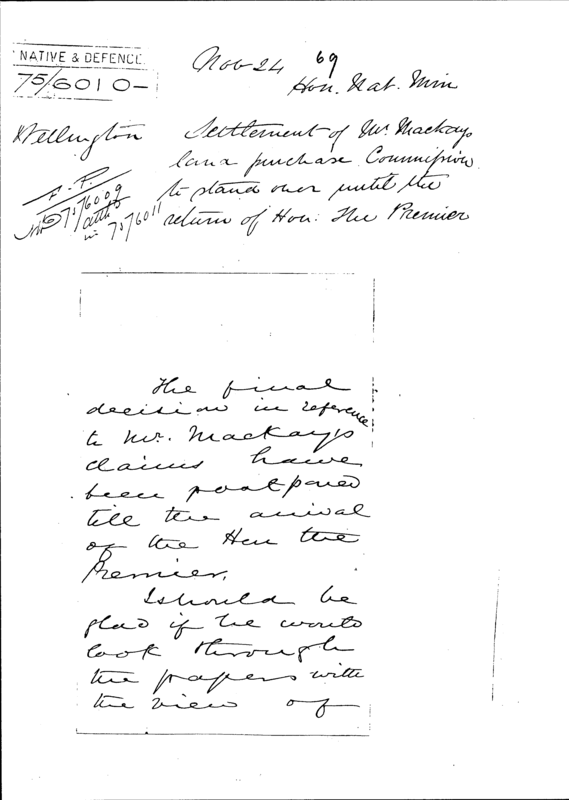 NATIVE & DEFENCE.
75/6010-
Nov 24 69
Hon. Nat. Min
Wellington
Settlement of Mr. Mackays
land purchase Commission
to stand over until the
return of Hon: The Premier
75/6009
in 75/6011
The final
decision in reference
to Mr. Mackays
claims have
been postponed
till the arrival
of the Hon the
Premier.
I should be
glad if he would
look through
the papers with
the view of